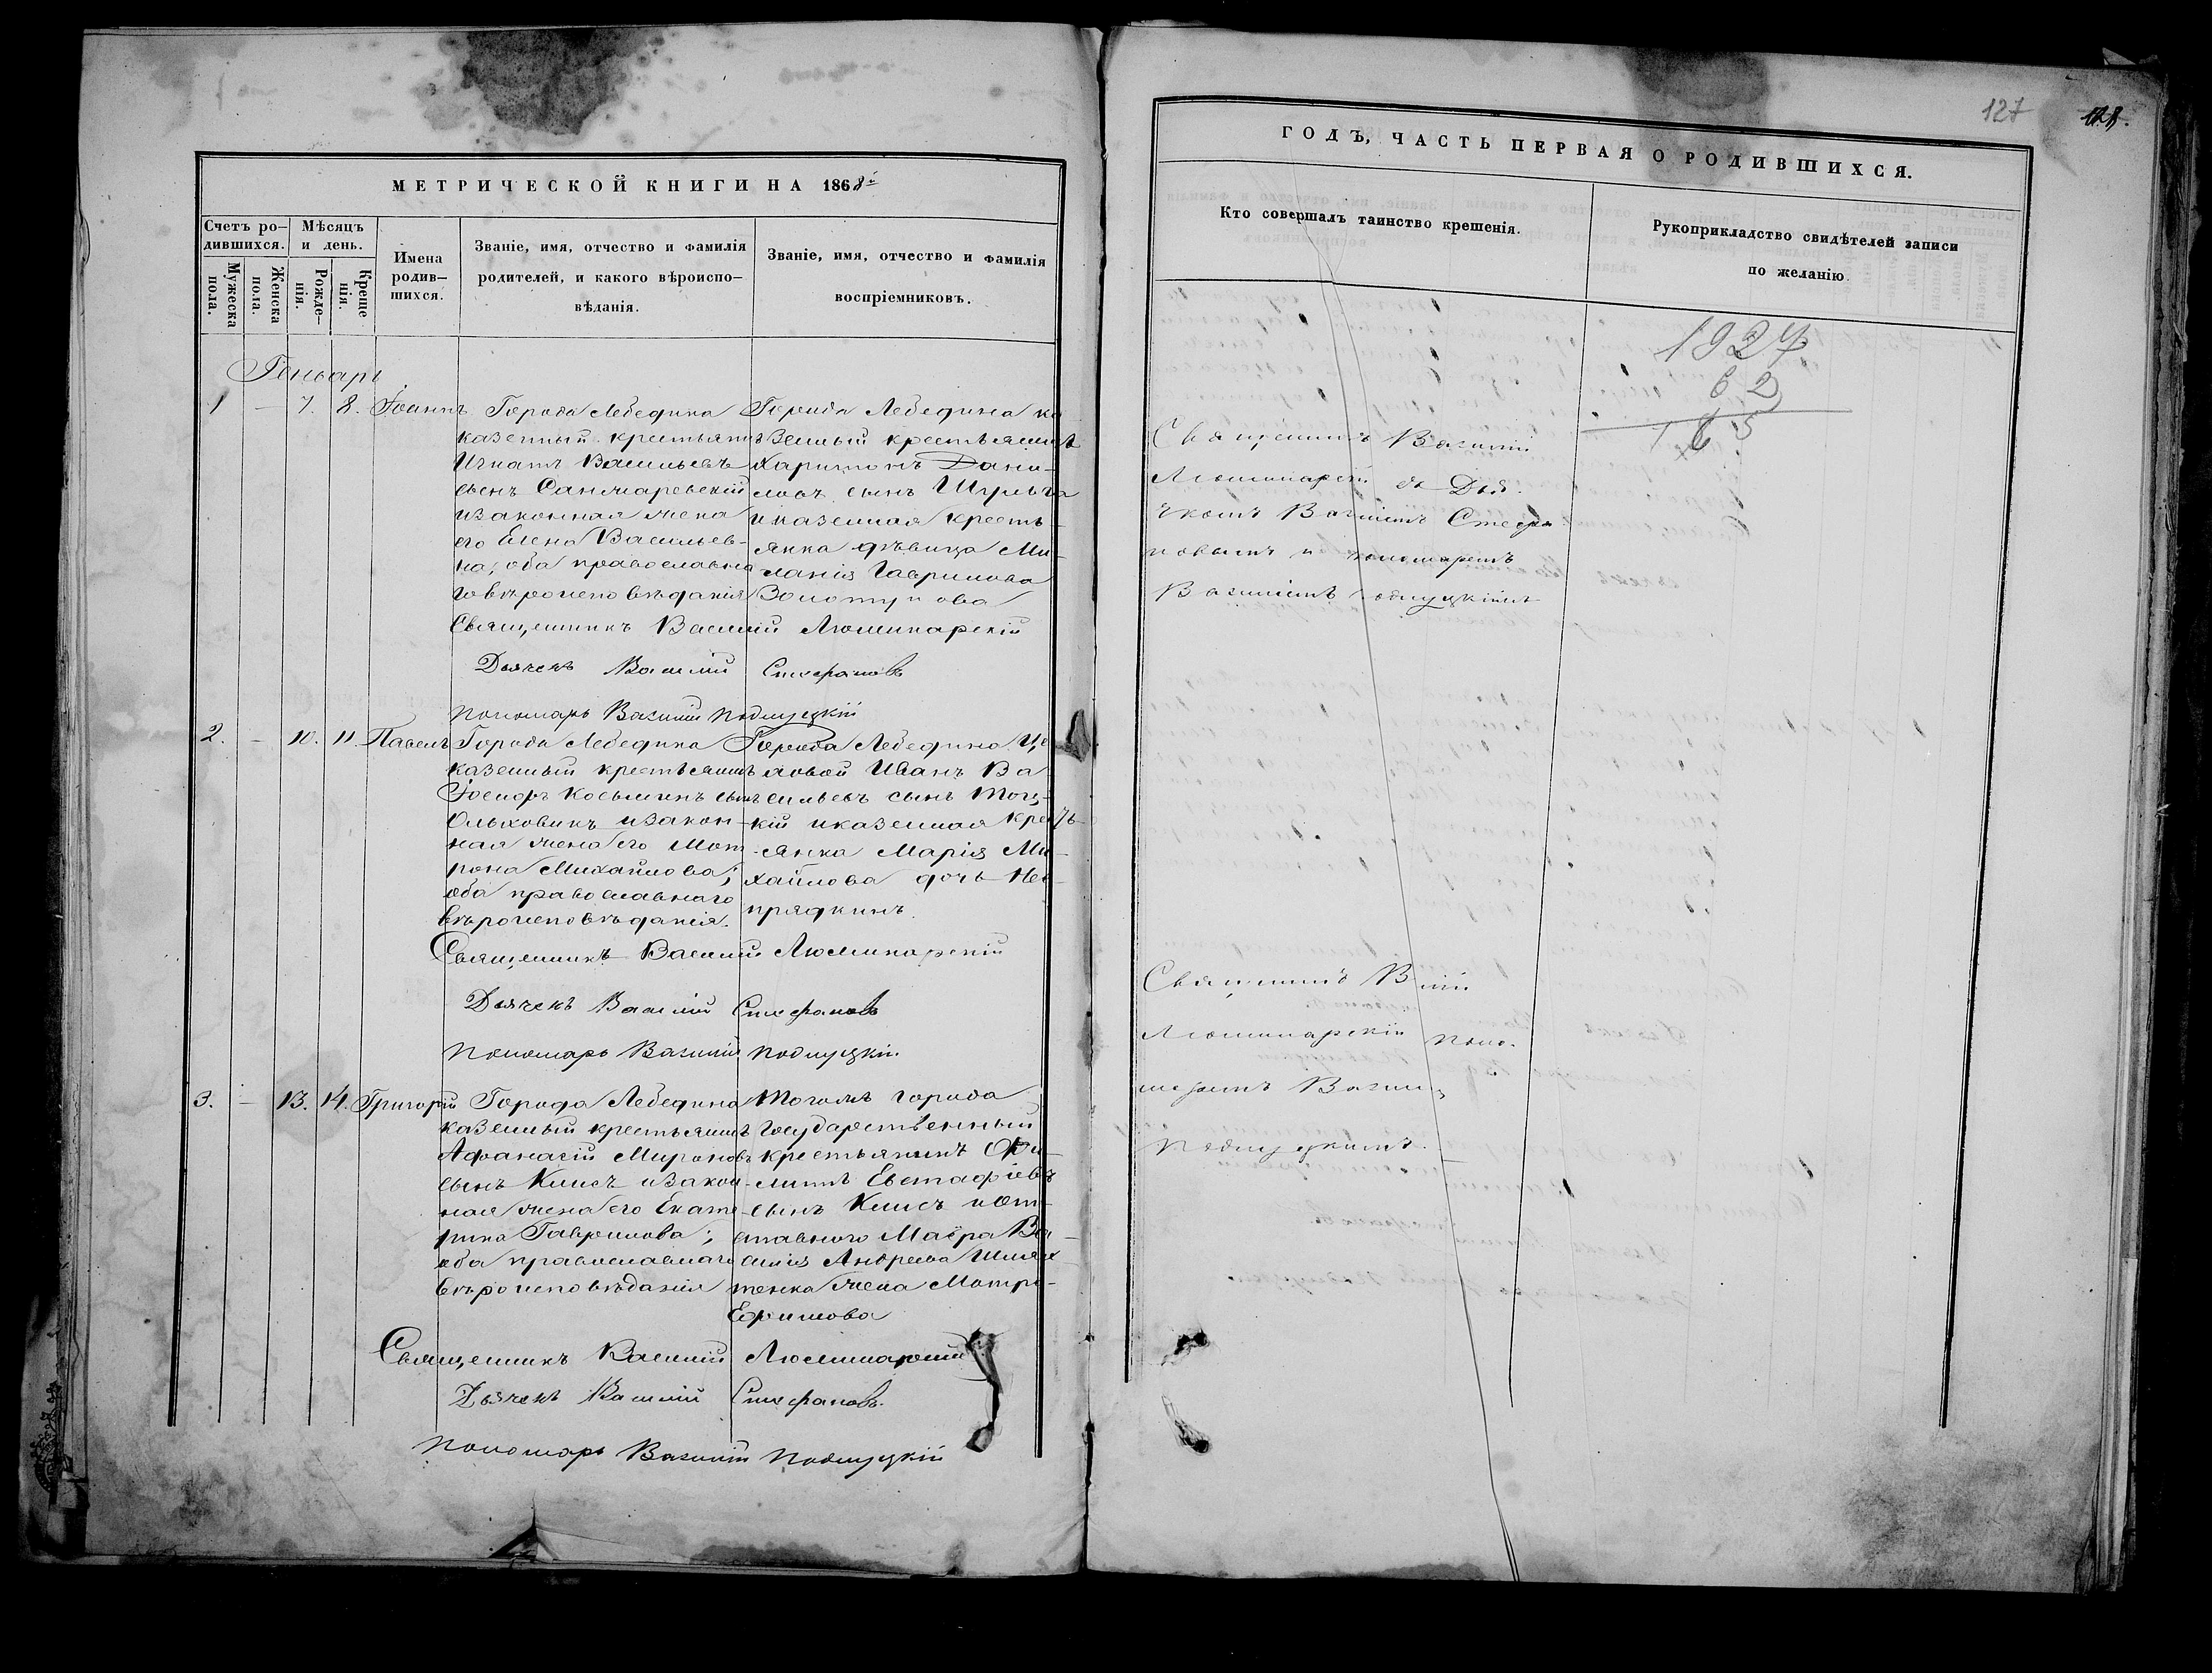 127
128.
МЕТРИЧЕСКОЙ КНИГИ НА 1868й
Счетъ ро-
дившихся.
Мужеска
пола.
Женска
пола.
Мѣсяцъ
и день.
Рожде-
нія.
Креще
нія.
Имена
родив-
шихся.
Званіе, имя, отчество и фамилія
родителей, и какого вѣроиспо-
вѣданія.
Званіе, имя, отчество и фамилія
воспріемниковъ.
Генварь
1 — 7. 8. Іоаннъ
Города Лебедина
казенный крестьянинъ
Игнатъ Васильевъ
сынъ
изаконная жена
его Елена Васильев-
на; оба православна
говѣроисповѣданія
Города Лебедина ка
зенный крестьянинъ
Харитонъ Дани-
ловъ сынъ Шульга
иказенная кресть-
янка дѣвица Ми-
ланія Гаврилова
Золотухова
Священникъ Василій
Дьячекъ Василій Стефановъ
пономарь Василій
2. — 10. 11. Павелъ
Города Лебедина
казенный крестьянинъ
Косьминъ сынъ
Ольховикъ изакон-
ная жена его Мот
рона Михайлова;
оба православнаго
вѣроисповѣданія.
Города Лебедина Це
ховой Иванъ Ва
сильевъ сынъ
кій иказенная кресть-
янка Марія Ми-
хайлова дочь Неп-
прядкинъ.
Священникъ Василій
Дьячекъ Василій Стефановъ
пономарь Василій
3. — 13. 14. Григорій
Города Лебедина
казенный крестьянинъ
Афанасій Мироновъ
сынъ Клисъ изакон-
ная жена его Екате
рина Гаврилова;
оба православнаго
вѣроисповѣданія
Тогожъ города
Государственный
крестьянинъ Фи-
липпъ Евстафіевъ
сынъ Клисъ иОт-
ставного Маіора Ва-
силія Андреева
жена Матро-
Ефимова
Священникъ Василій
Дьячекъ Василій Стефановъ.
пономарь Василій
ГОДЪ, ЧАСТЬ ПЕРВАЯ О РОДИВШИХСЯ.
Кто совершалъ таинство крещенія.
Рукоприкладство свидѣтелей записи
по желанію.
1927
62
Священникъ Василій
съ Дья-
чкомъ Василіемъ Стефа
новымъ и пономаремъ
Василіемъ
Священникъ
поно-
маремъ